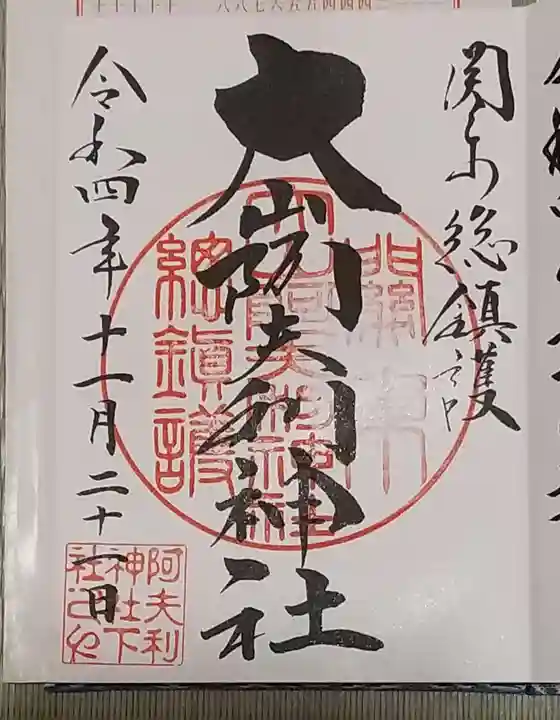 関東総鎮護
大山阿夫利神社
令和四年十一月二十一日
關東
大山阿夫利神社
總鎮護
阿夫利
神社下
社之也